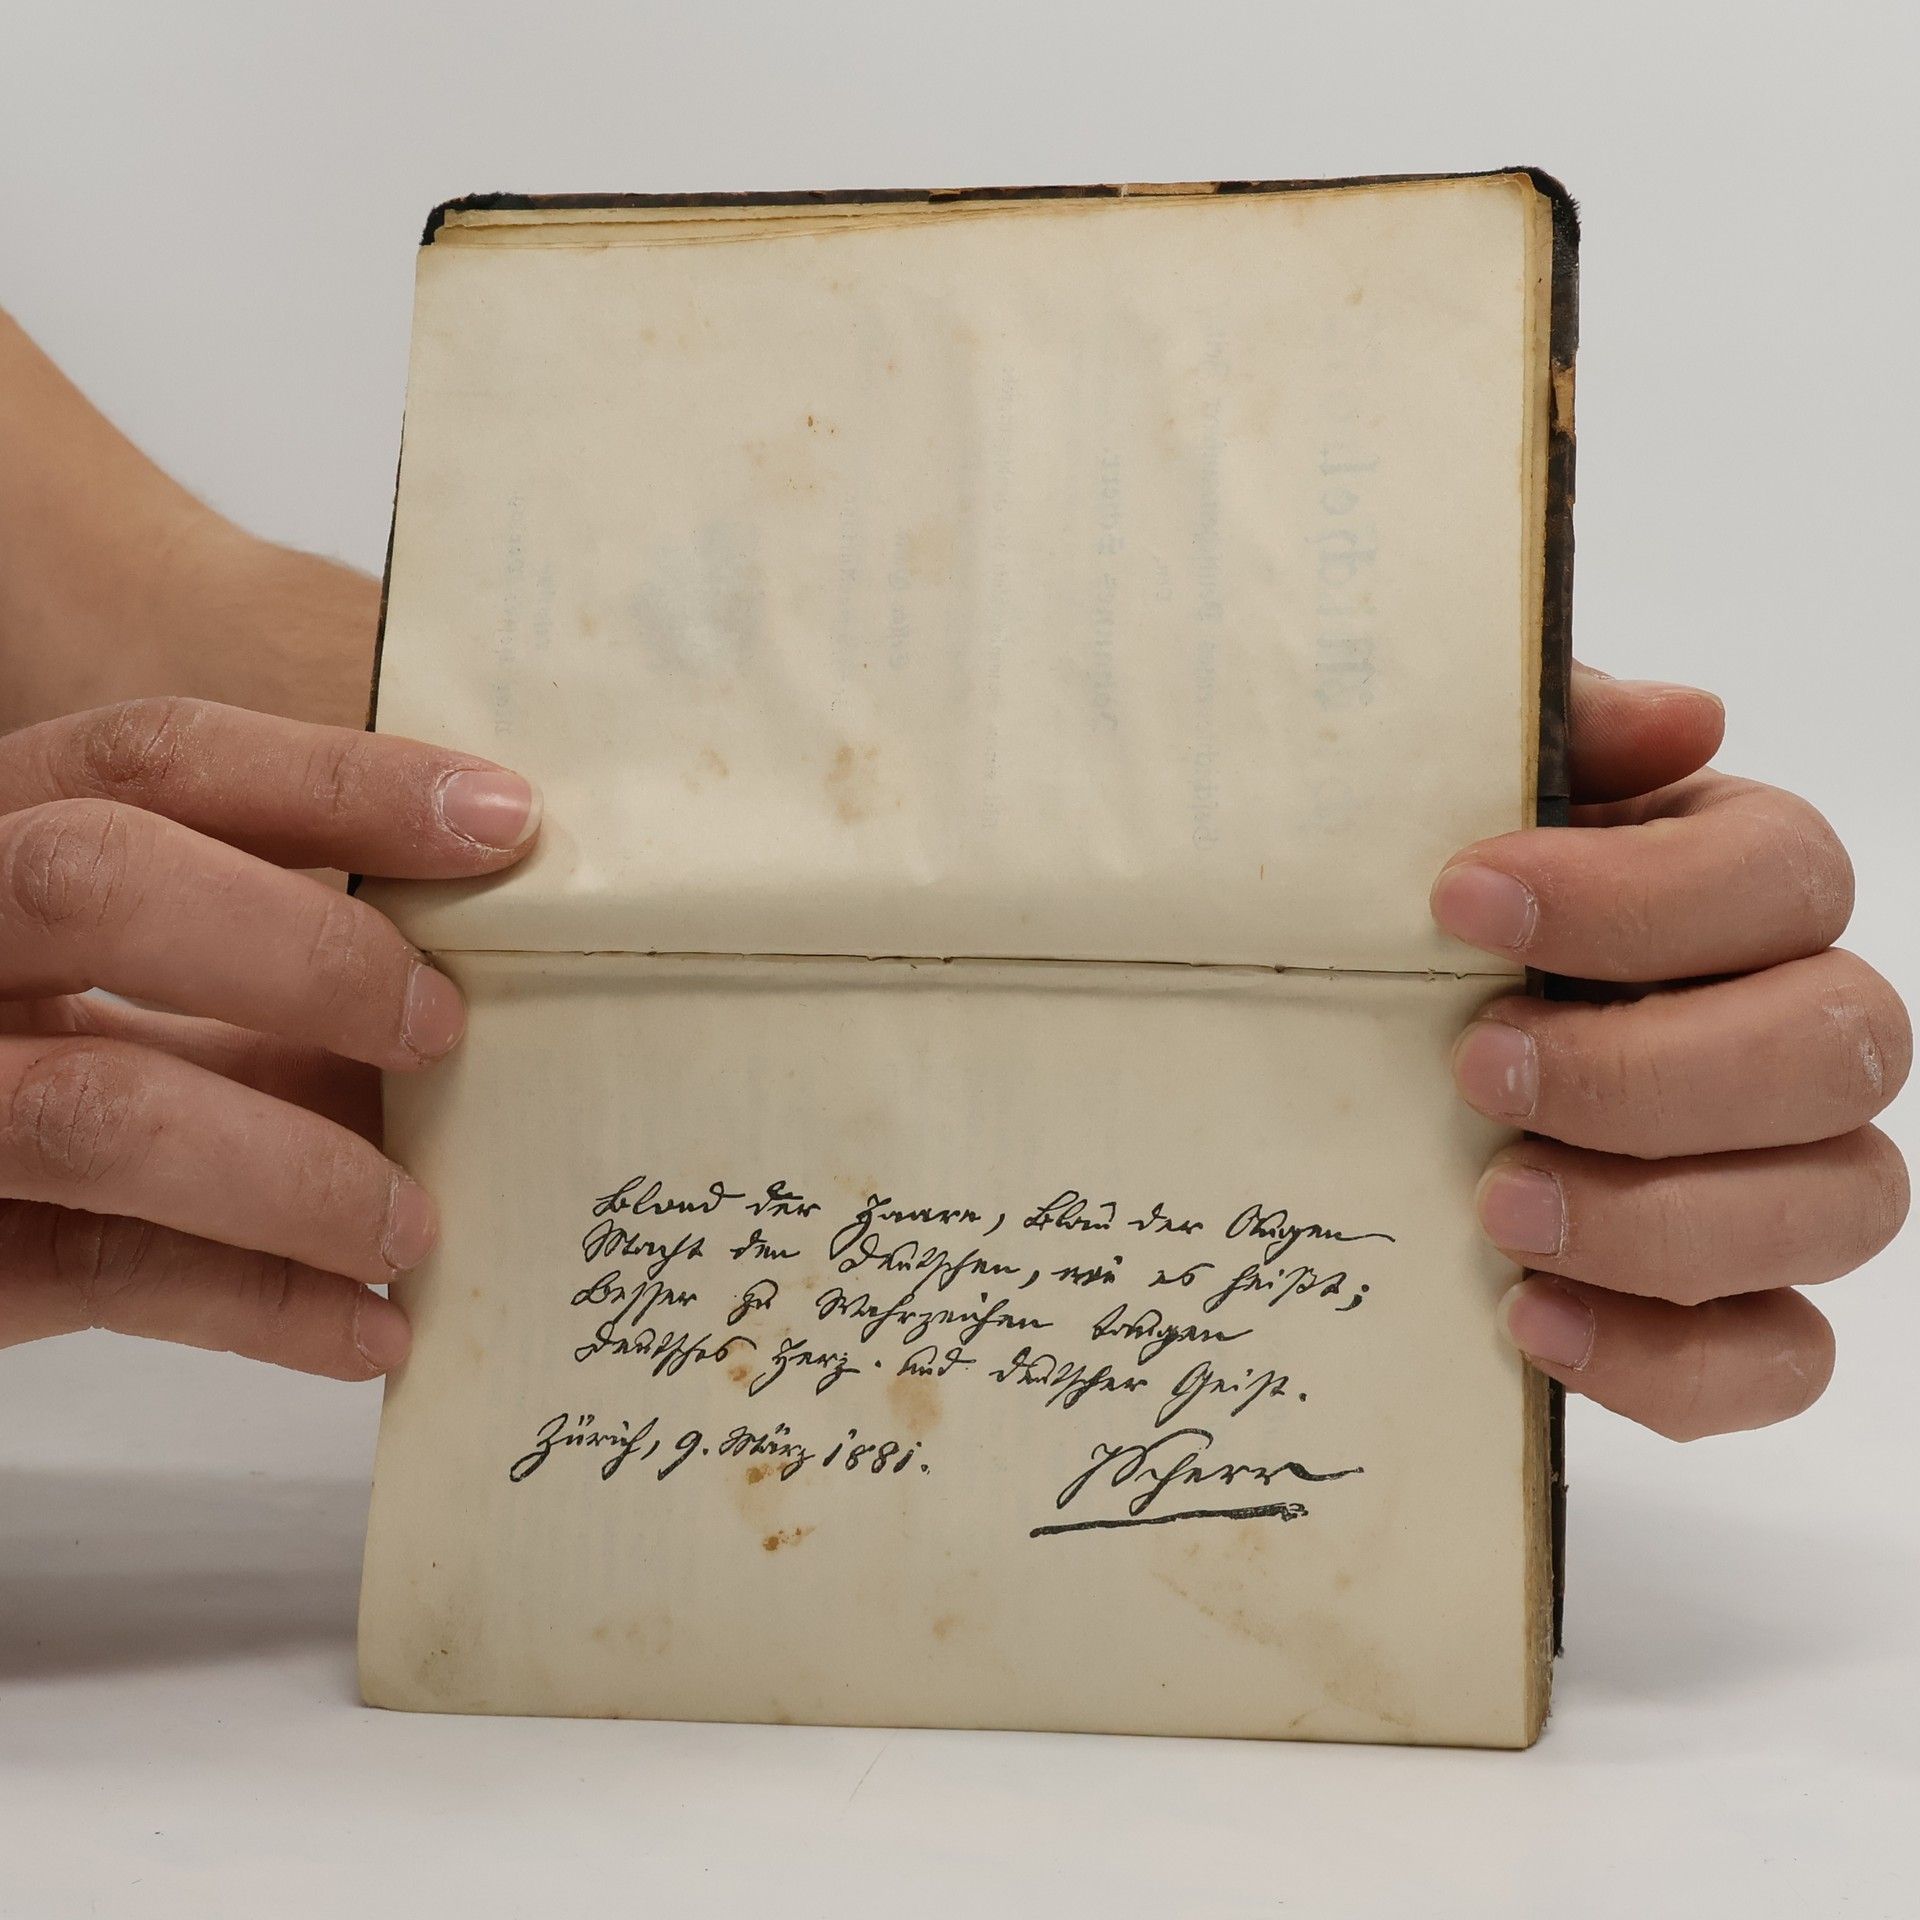 Blond der Haare, Blau der Augen
Macht den Deutschen, wie es heißt;
Besser zu Wahrzeichen taugen
Deutsches Herz und deutscher Geist.
Zürich, 9. März 1881.
JScherr